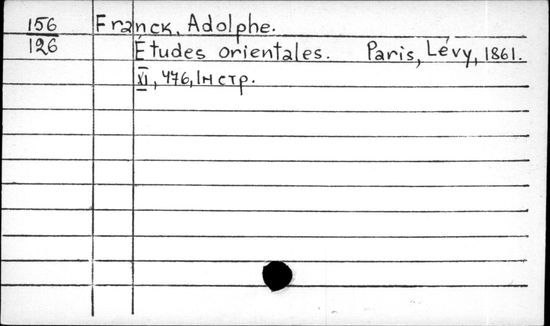 156 Franck, Adolphe.
126 Études orientales. Paris, Lévy, 1861.
XI, 476, 1н стр.